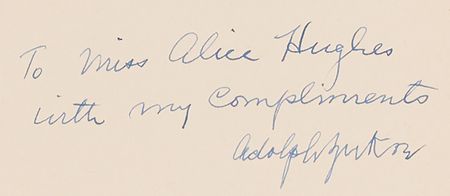 To Miss Alice Hughes
with my Compliments
Adolph Zukor